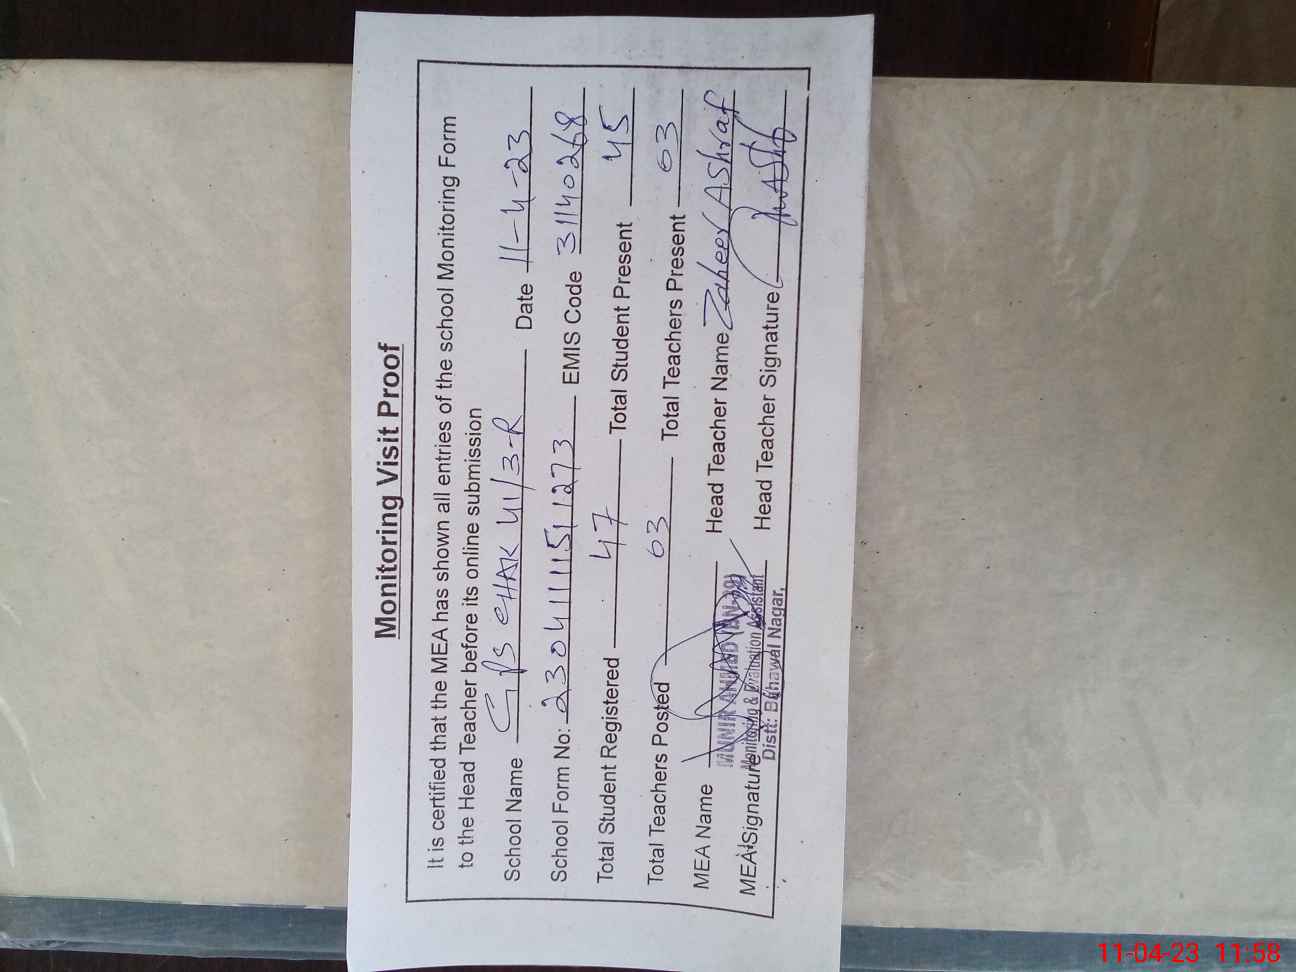 Monitoring Visit Proof
It is certified that the MEA has shown all entries of the school Monitoring Form
to the Head Teacher before its online submission
School Name GPS CHAK 41/3-R Date 11-4-23
School Form No: 23041111511273 EMIS Code 31140268
Total Student Registered 47 Total Student Present 45
Total Teachers Posted 03 Total Teachers Present 03
MEA Name Head Teacher Name Zaheer Ashraf
MUNIR AHMED
MEA Signature Head Teacher Signature
Monitoring & Evaluation Assistant
Distt: Bahawal Nagar,
11-04-23 11:58